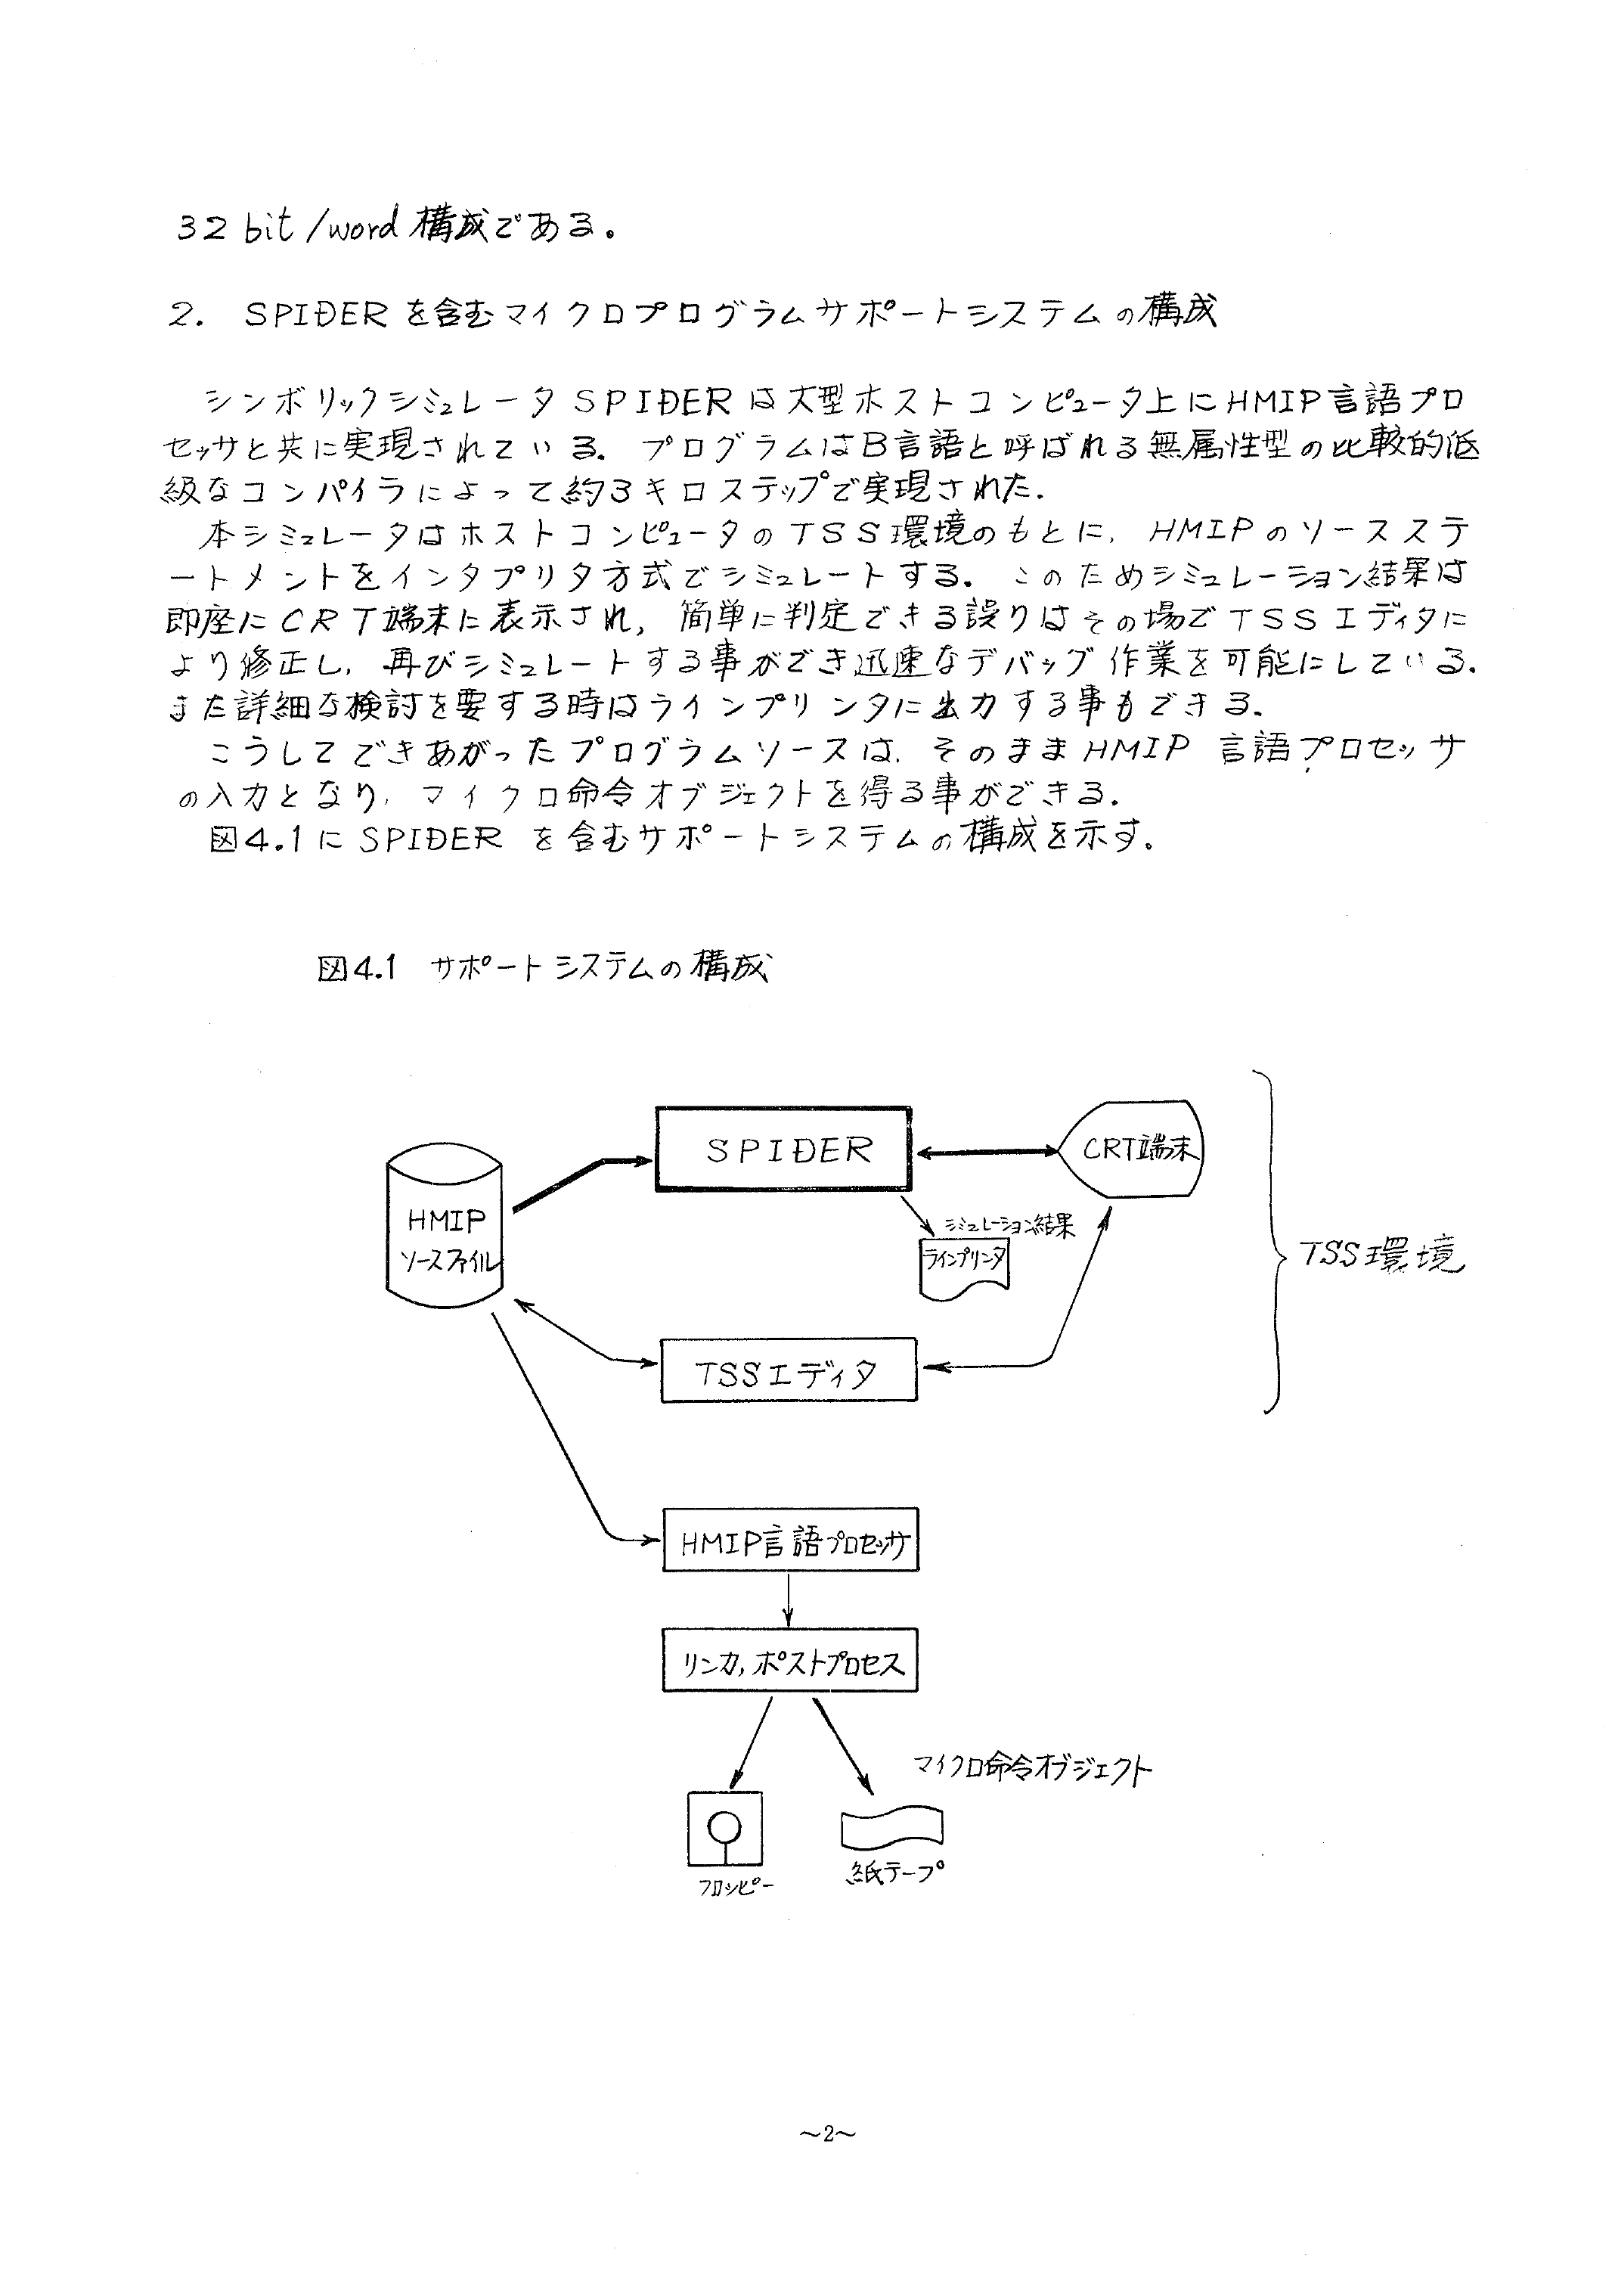 32 bit/word 構成である。
2. SPIDER を含むマイクロプログラムサポートシステムの構成
シンボリックシミュレータ SPIDER は大型ホストコンピュータ上に HMIP 言語プロ
セッサと共に実現されている. プログラムは B 言語と呼ばれる無属性型の比較的低
級なコンパイラによって約3キロステップで実現された.
本シミュレータはホストコンピュータの TSS 環境のもとに, HMIP のソースステ
ートメントをインタプリタ方式でシミュレートする. このためシミュレーション結果は
即座に CRT 端末に表示され, 簡単に判定できる誤りはその場で TSS エディタに
より修正し, 再びシミュレートする事ができ迅速なデバッグ作業を可能にしている.
また詳細な検討を要する時はラインプリンタに出力する事もできる.
こうしてできあがったプログラムソースは, そのまま HMIP 言語プロセッサ
の入力となり, マイクロ命令オブジェクトを得る事ができる.
図4.1 に SPIDER を含むサポートシステムの構成を示す.
図4.1 サポートシステムの構成
SPIDER
CRT端末
HMIP
ソースファイル
シミュレーション結果
ラインプリンタ
TSS環境
TSSエディタ
HMIP言語プロセッサ
リンカ, ポストプロセス
マイクロ命令オブジェクト
フロッピー
紙テープ
〜2〜